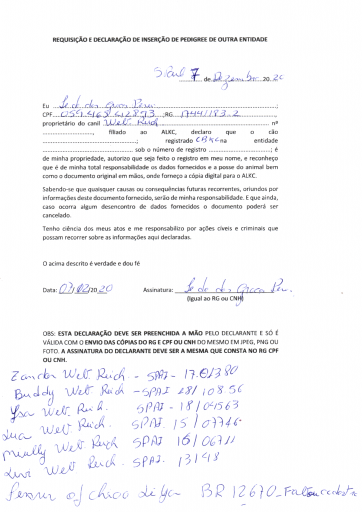 REQUISIÇÃO E DECLARAÇÃO DE INSERÇÃO DE PEDIGREE DE OUTRA ENTIDADE
7 de Dezembro 20 20
Eu
CPF RG
proprietário do canil Web Reich nº
, filiado ao ALKC, declaro que o cão
; registrado CBKC na entidade
sob o número de registro ; é
de minha propriedade, autorizo que seja feito o registro em meu nome, e reconheço
que é de minha total responsabilidade os dados fornecidos e a posse do animal bem
como o documento original em mãos, onde forneço a cópia digital para o ALKC.
Sabendo-se que quaisquer causas ou consequências futuras recorrentes, oriundos por
informações deste documento fornecido, serão de minha responsabilidade. E que ainda,
caso ocorra algum desencontro de dados fornecidos o documento poderá ser
cancelado.
Tenho ciência dos meus atos e me responsabilizo por ações cíveis e criminais que
possam recorrer as informações aqui declaradas.
O acima descrito é verdade e dou fé
Data: 20 20 Assinatura:
(Igual ao RG ou CNH)
OBS: ESTA DECLARAÇÃO DEVE SER PREENCHIDA A MÃO PELO DECLARANTE E SÓ É
VÁLIDA COM O ENVIO DAS CÓPIAS DO RG E CPF OU CNH DO MESMO EM JPEG, PNG OU
FOTO. A ASSINATURA DO DECLARANTE DEVE SER A MESMA QUE CONSTA NO RG CPF
OU CNH.
Web Reich - SPAI - 17.01380
Buddy Web Reich - SPAI 28/108.56
Web Reich. SPAI - 18/04563
Lua Web Reich. SPAI. 15/07746
Web Reich SPAI 16/06711
Web Reich. SPAI. 13148
of chico BR 12670